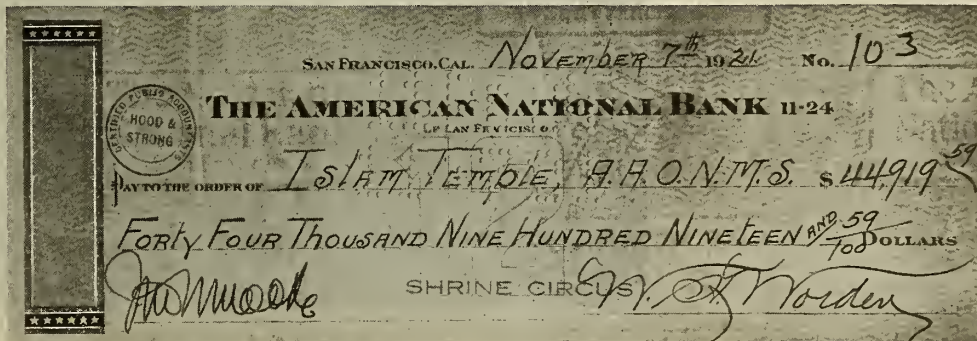 SAN FRANCISCO, CAL. NOVEMBER 7th 1921. No. 103
THE AMERICAN NATIONAL BANK 11-24
CERTIFIED PUBLIC ACCOUNTANTS
HOOD &
STRONG
PAY TO THE ORDER OF ISLAM TEMPLE, A.A.O.N.M.S. $44,919 59
FORTY FOUR THOUSAND NINE HUNDRED NINETEEN AND 59/100 DOLLARS
SHRINE CIRCUS
Worden